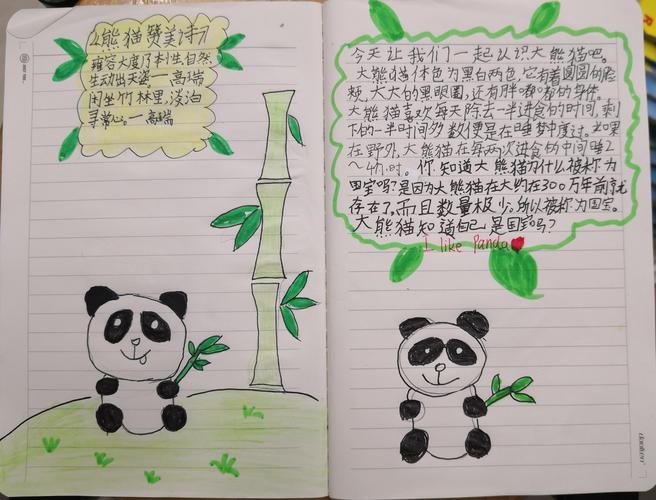 《熊猫赞美诗》
雍容大度了本性,自然
生动出天姿。一高瑞
闲坐竹林里,淡泊
寻常心。一高瑞
今天让我们一起认识大熊猫吧。
大熊猫体色为黑白两色,它有着圆圆的脸
颊,大大的黑眼圈,还有胖嘟嘟的身体。
大熊猫喜欢每天除去一半进食的时间,剩
下的一半时间多数便是在睡梦中度过。
在野外,大熊猫在每两次进食的中间睡2
~4小时。你知道大熊猫为什么被称为
国宝吗?是因为大熊猫在大约在300万年前就
存在了,而且数量极少。所以被称为国宝。
大熊猫知道自己是国宝吗?
I like Panda